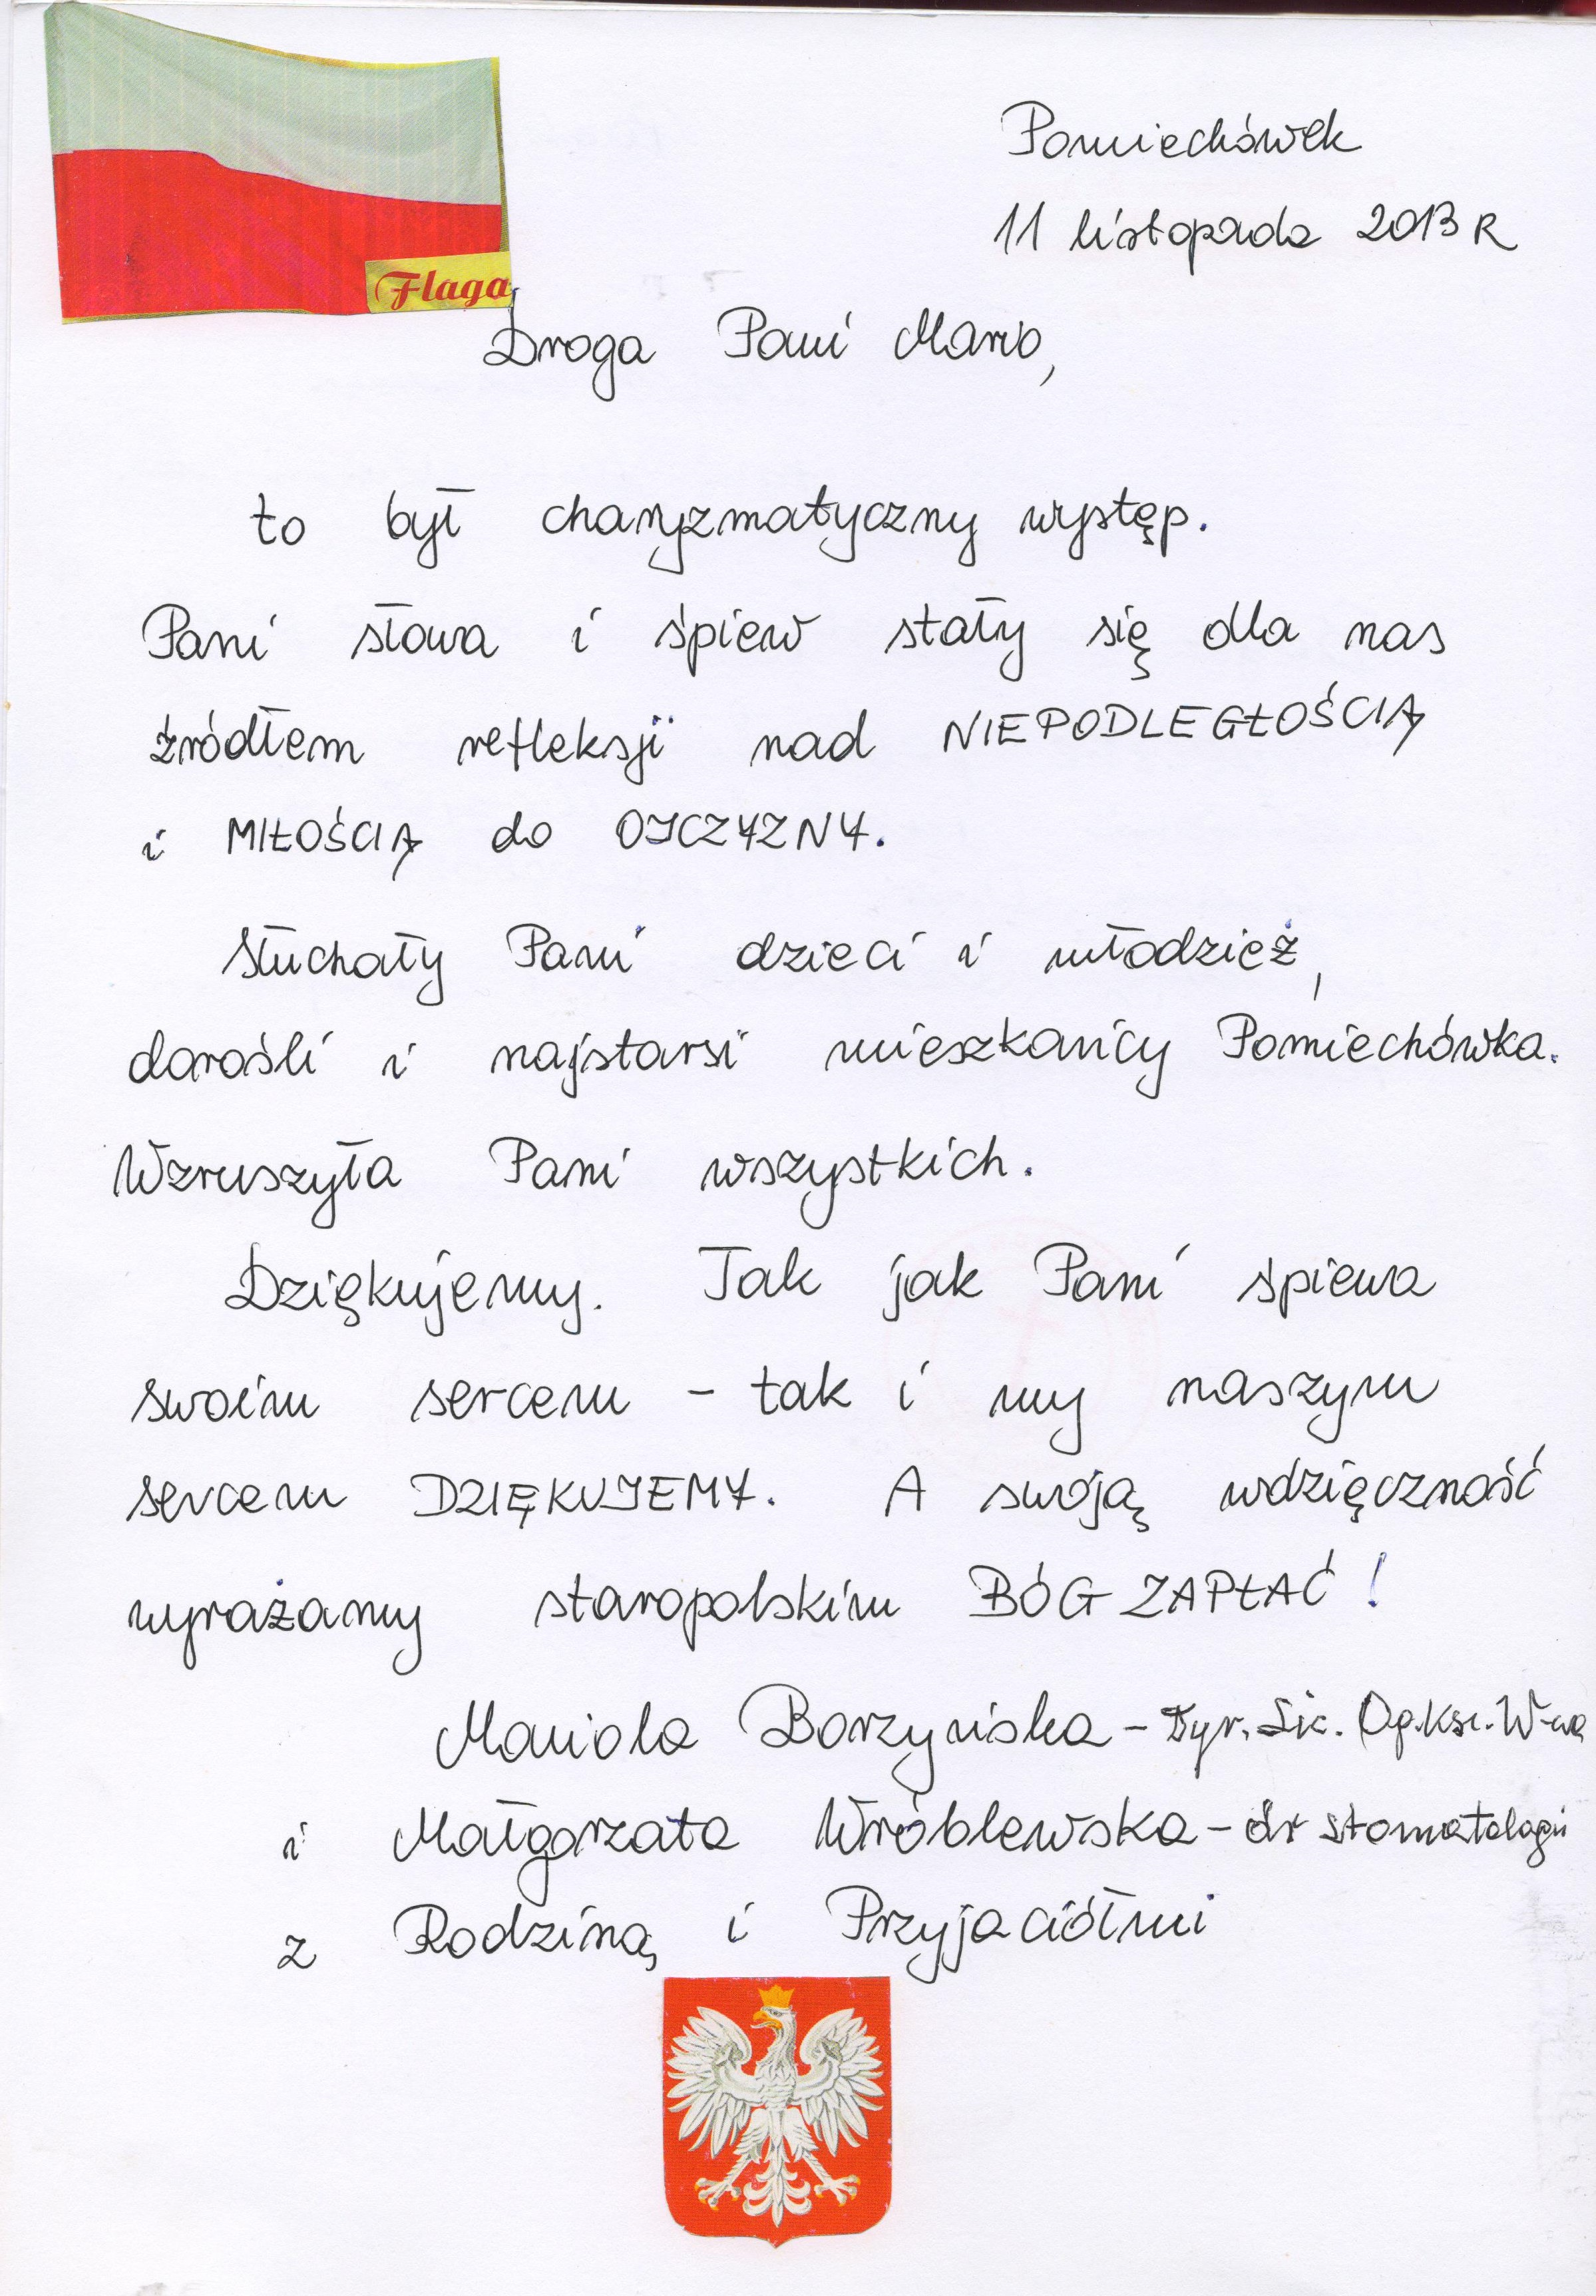 Pomiechówek
11 listopada 2013 R
Flaga
Droga Pani Mario,
to był charyzmatyczny występ.
Pani słowa i śpiew stały się dla nas
źródłem refleksji nad NIEPODLEGŁOŚCIĄ
i MIŁOŚCIĄ do OJCZYZNY.
Słuchały Pani dzieci i młodzież,
dorośli i najstarsi mieszkańcy Pomiechówka.
Wzruszyła Pani wszystkich.
Dziękujemy. Tak jak Pani śpiewa
swoim sercem - tak i my naszym
sercem DZIĘKUJEMY. A swoją wdzięczność
wyrażamy staropolskim BÓG ZAPŁAĆ!
Mariola Borzyńska - Dyr. Lic. Og. Kszt. W-wa
i Małgorzata Wróblewska - dr stomatologii
z Rodziną i Przyjaciółmi